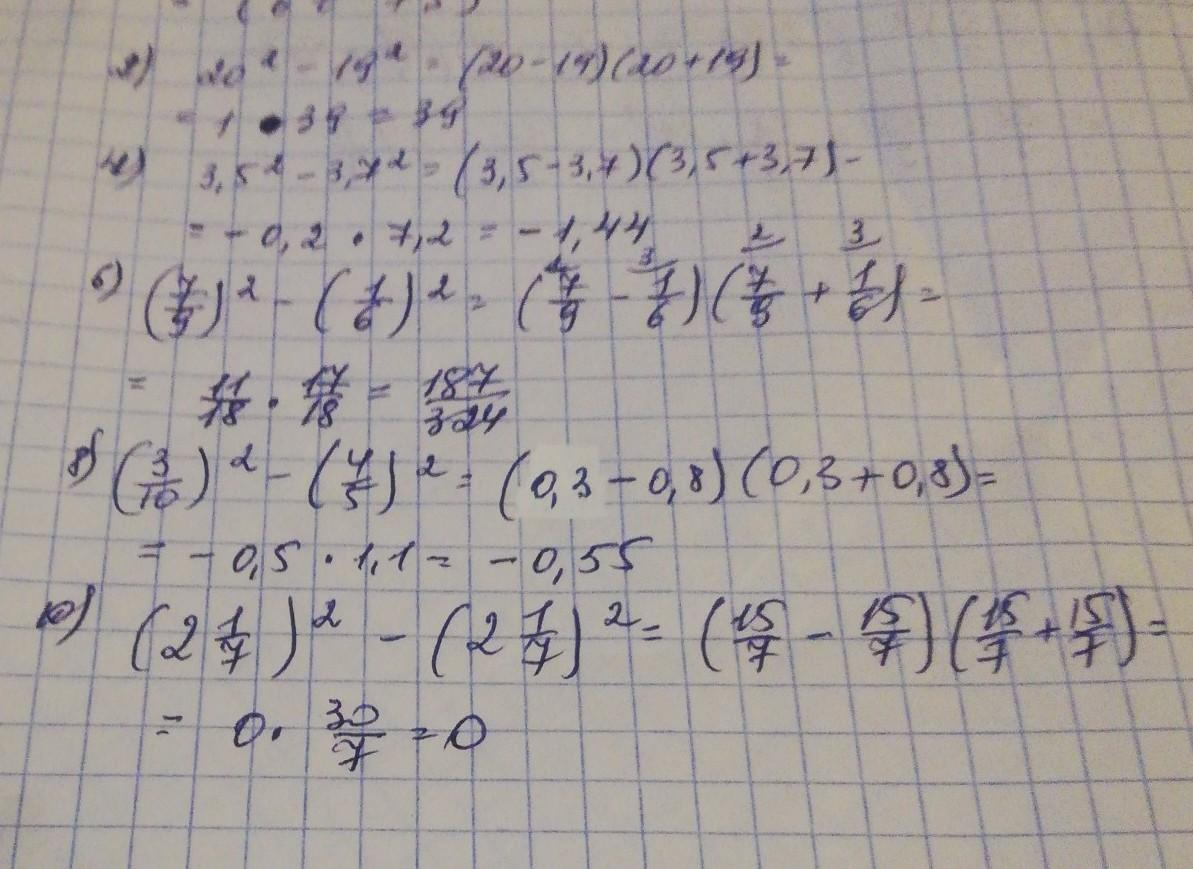 2) 20² - 19² = (20-19)(20+19) =
= 1 • 39 = 39
4) 3,5² - 3,7² = (3,5-3,7)(3,5+3,7) -
= - 0,2 · 7,2 = - 1,44
6) (7/9)² - (1/6)² = (7/9 - 1/6)(7/9 + 1/6) =
= 11/18 · 17/18 = 187/324
8) (3/10)² - (4/5)² = (0,3 - 0,8)(0,3 + 0,8) =
= - 0,5 · 1,1 = - 0,55
10) (2 1/7)² - (2 1/7)² = (15/7 - 15/7)(15/7 + 15/7) =
= 0 · 30/7 = 0